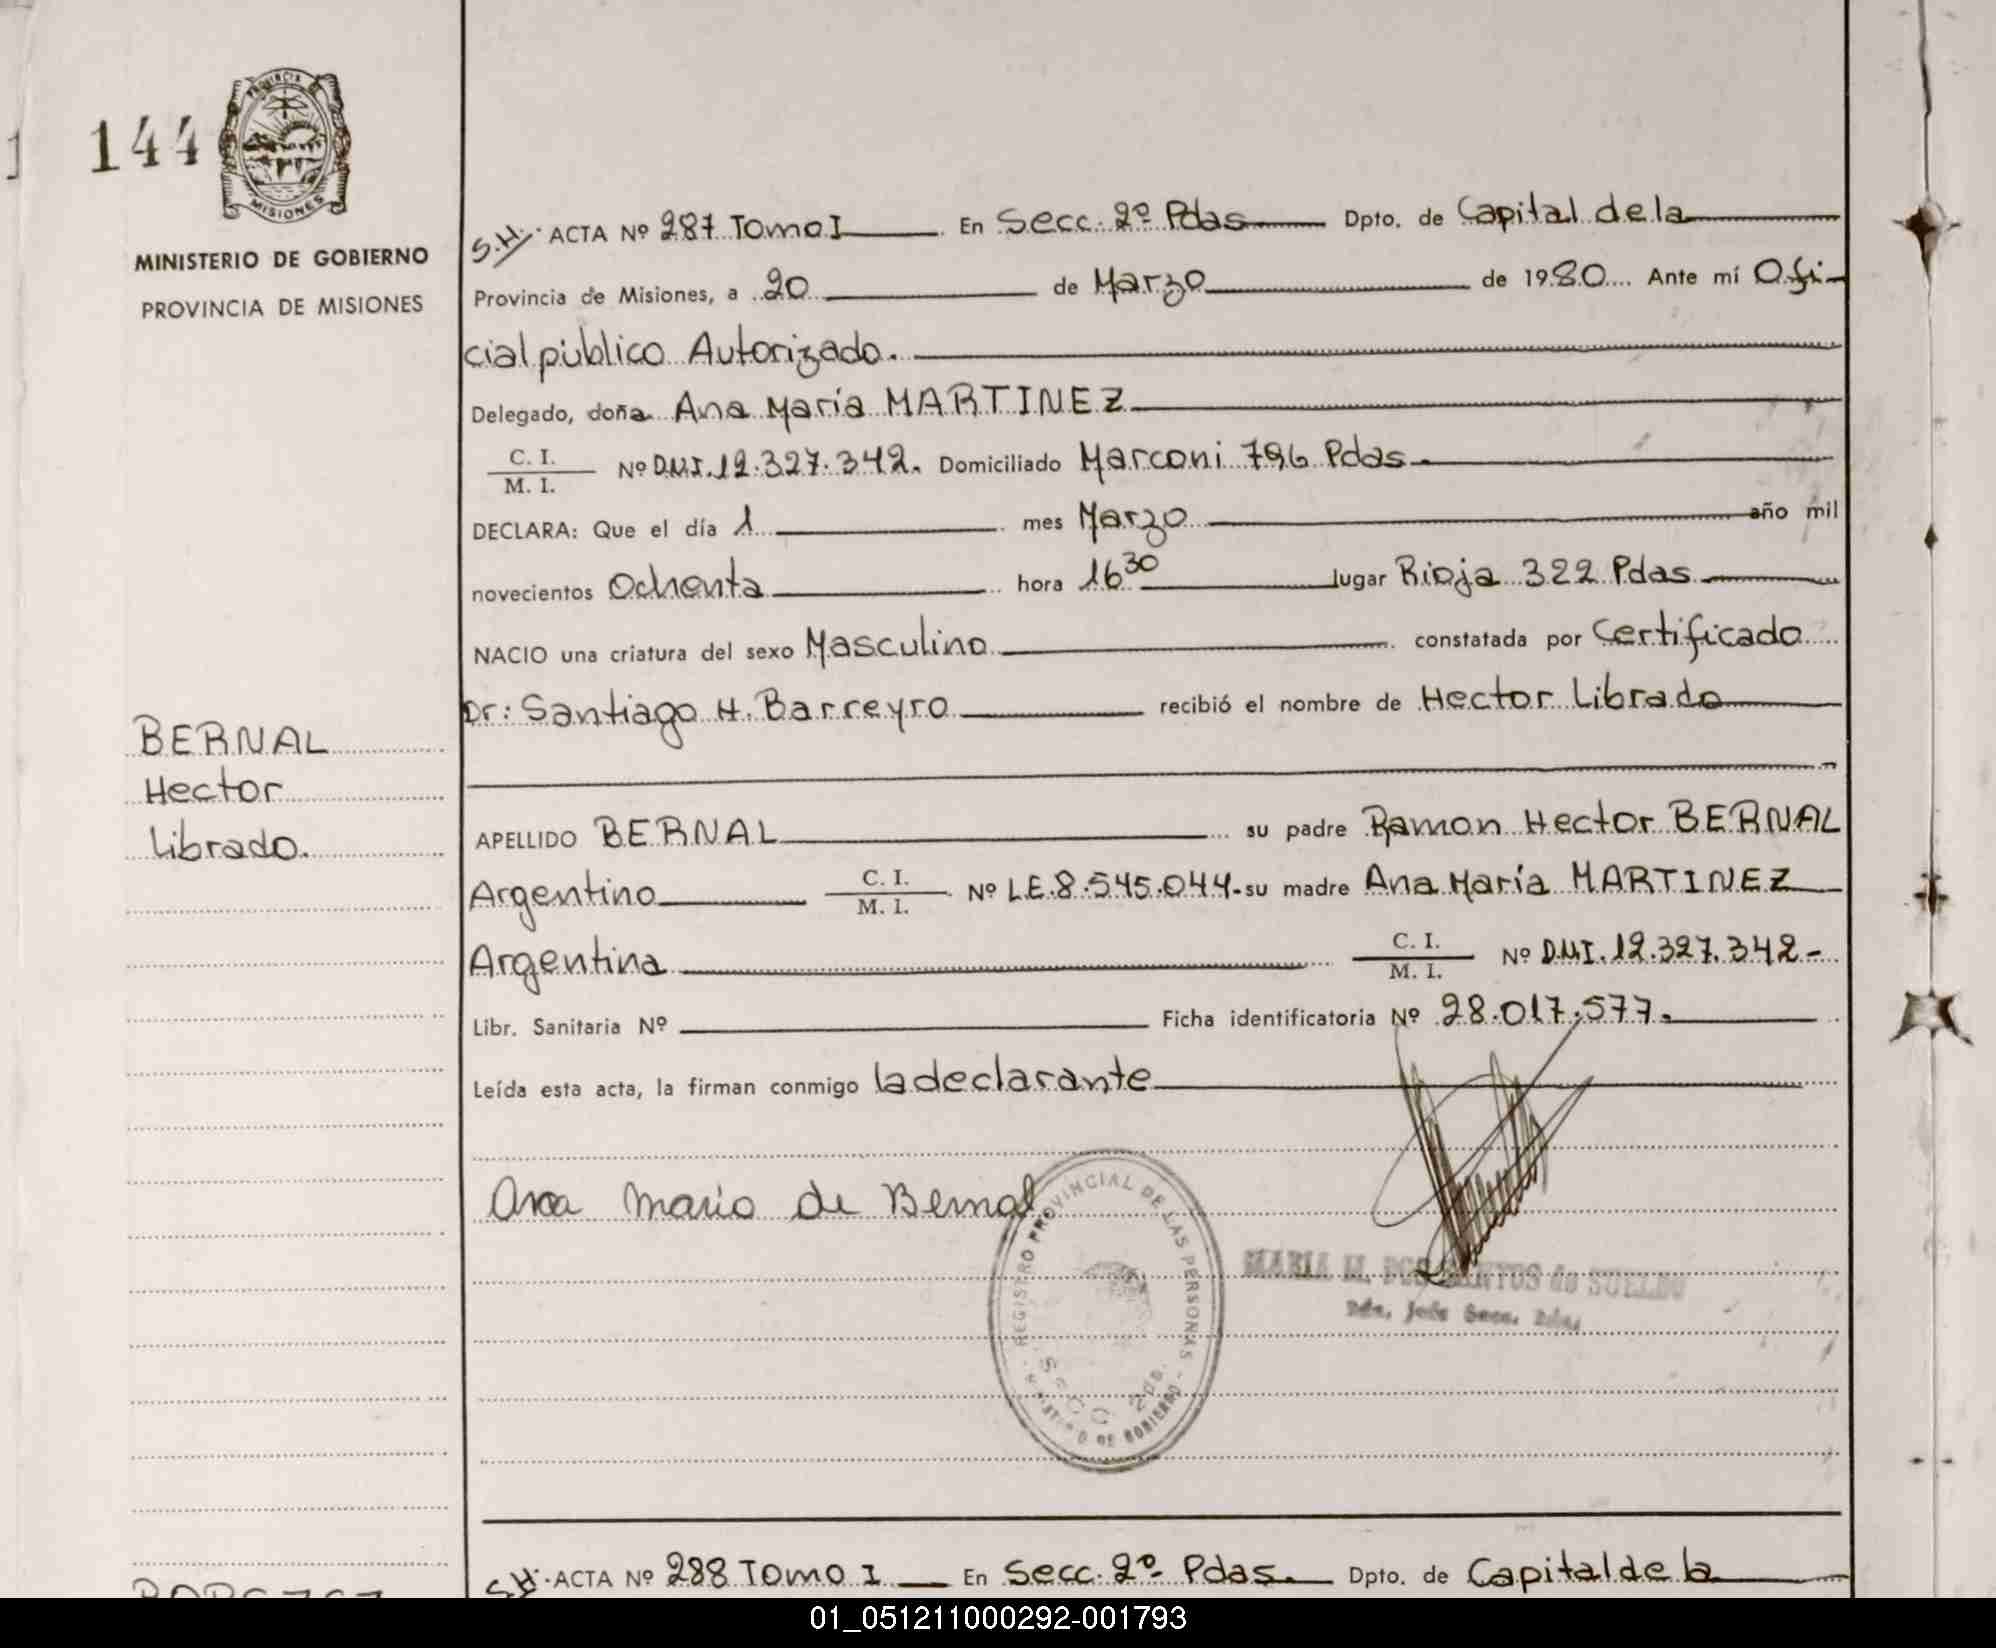 144
PROVINCIA
MISIONES
MINISTERIO DE GOBIERNO
PROVINCIA DE MISIONES
BERNAL
Hector
Librado.
S.H. ACTA Nº 287 Tomo I En Secc. 2º Pdas Dpto. de Capital de la
Provincia de Misiones, a 20 de Marzo de 1980 Ante mí Ofi-
cial público Autorizado.
Delegado, doña Ana María MARTINEZ
C. I.
M. I. Nº D.N.I. 12.327.342. Domiciliado Marconi 796 Pdas
DECLARA: Que el día 1 mes Marzo año mil
novecientos Ochenta hora 16 30 lugar Rioja 322 Pdas
NACIO una criatura del sexo Masculino constatada por Certificado
Dr: Santiago H. Barreyro recibió el nombre de Hector Librado
APELLIDO BERNAL su padre Ramon Hector BERNAL
Argentino C. I. M. I. Nº L.E. 8.545.044- su madre Ana María MARTINEZ
Argentina C. I. M. I. Nº D.N.I. 12.327.342-
Libr. Sanitaria Nº Ficha identificatoria Nº 28.017.577.
Leída esta acta, la firman conmigo la declarante
Ana Maria de Bernal
REGISTRO PROVINCIAL DE LAS PERSONAS
SECC. 2da.
DE GOBIERNO
MARIA M. DOS SANTOS de
S.H. ACTA Nº 288 Tomo I En Secc. 2º Pdas. Dpto. de Capital de la
01_051211000292-001793